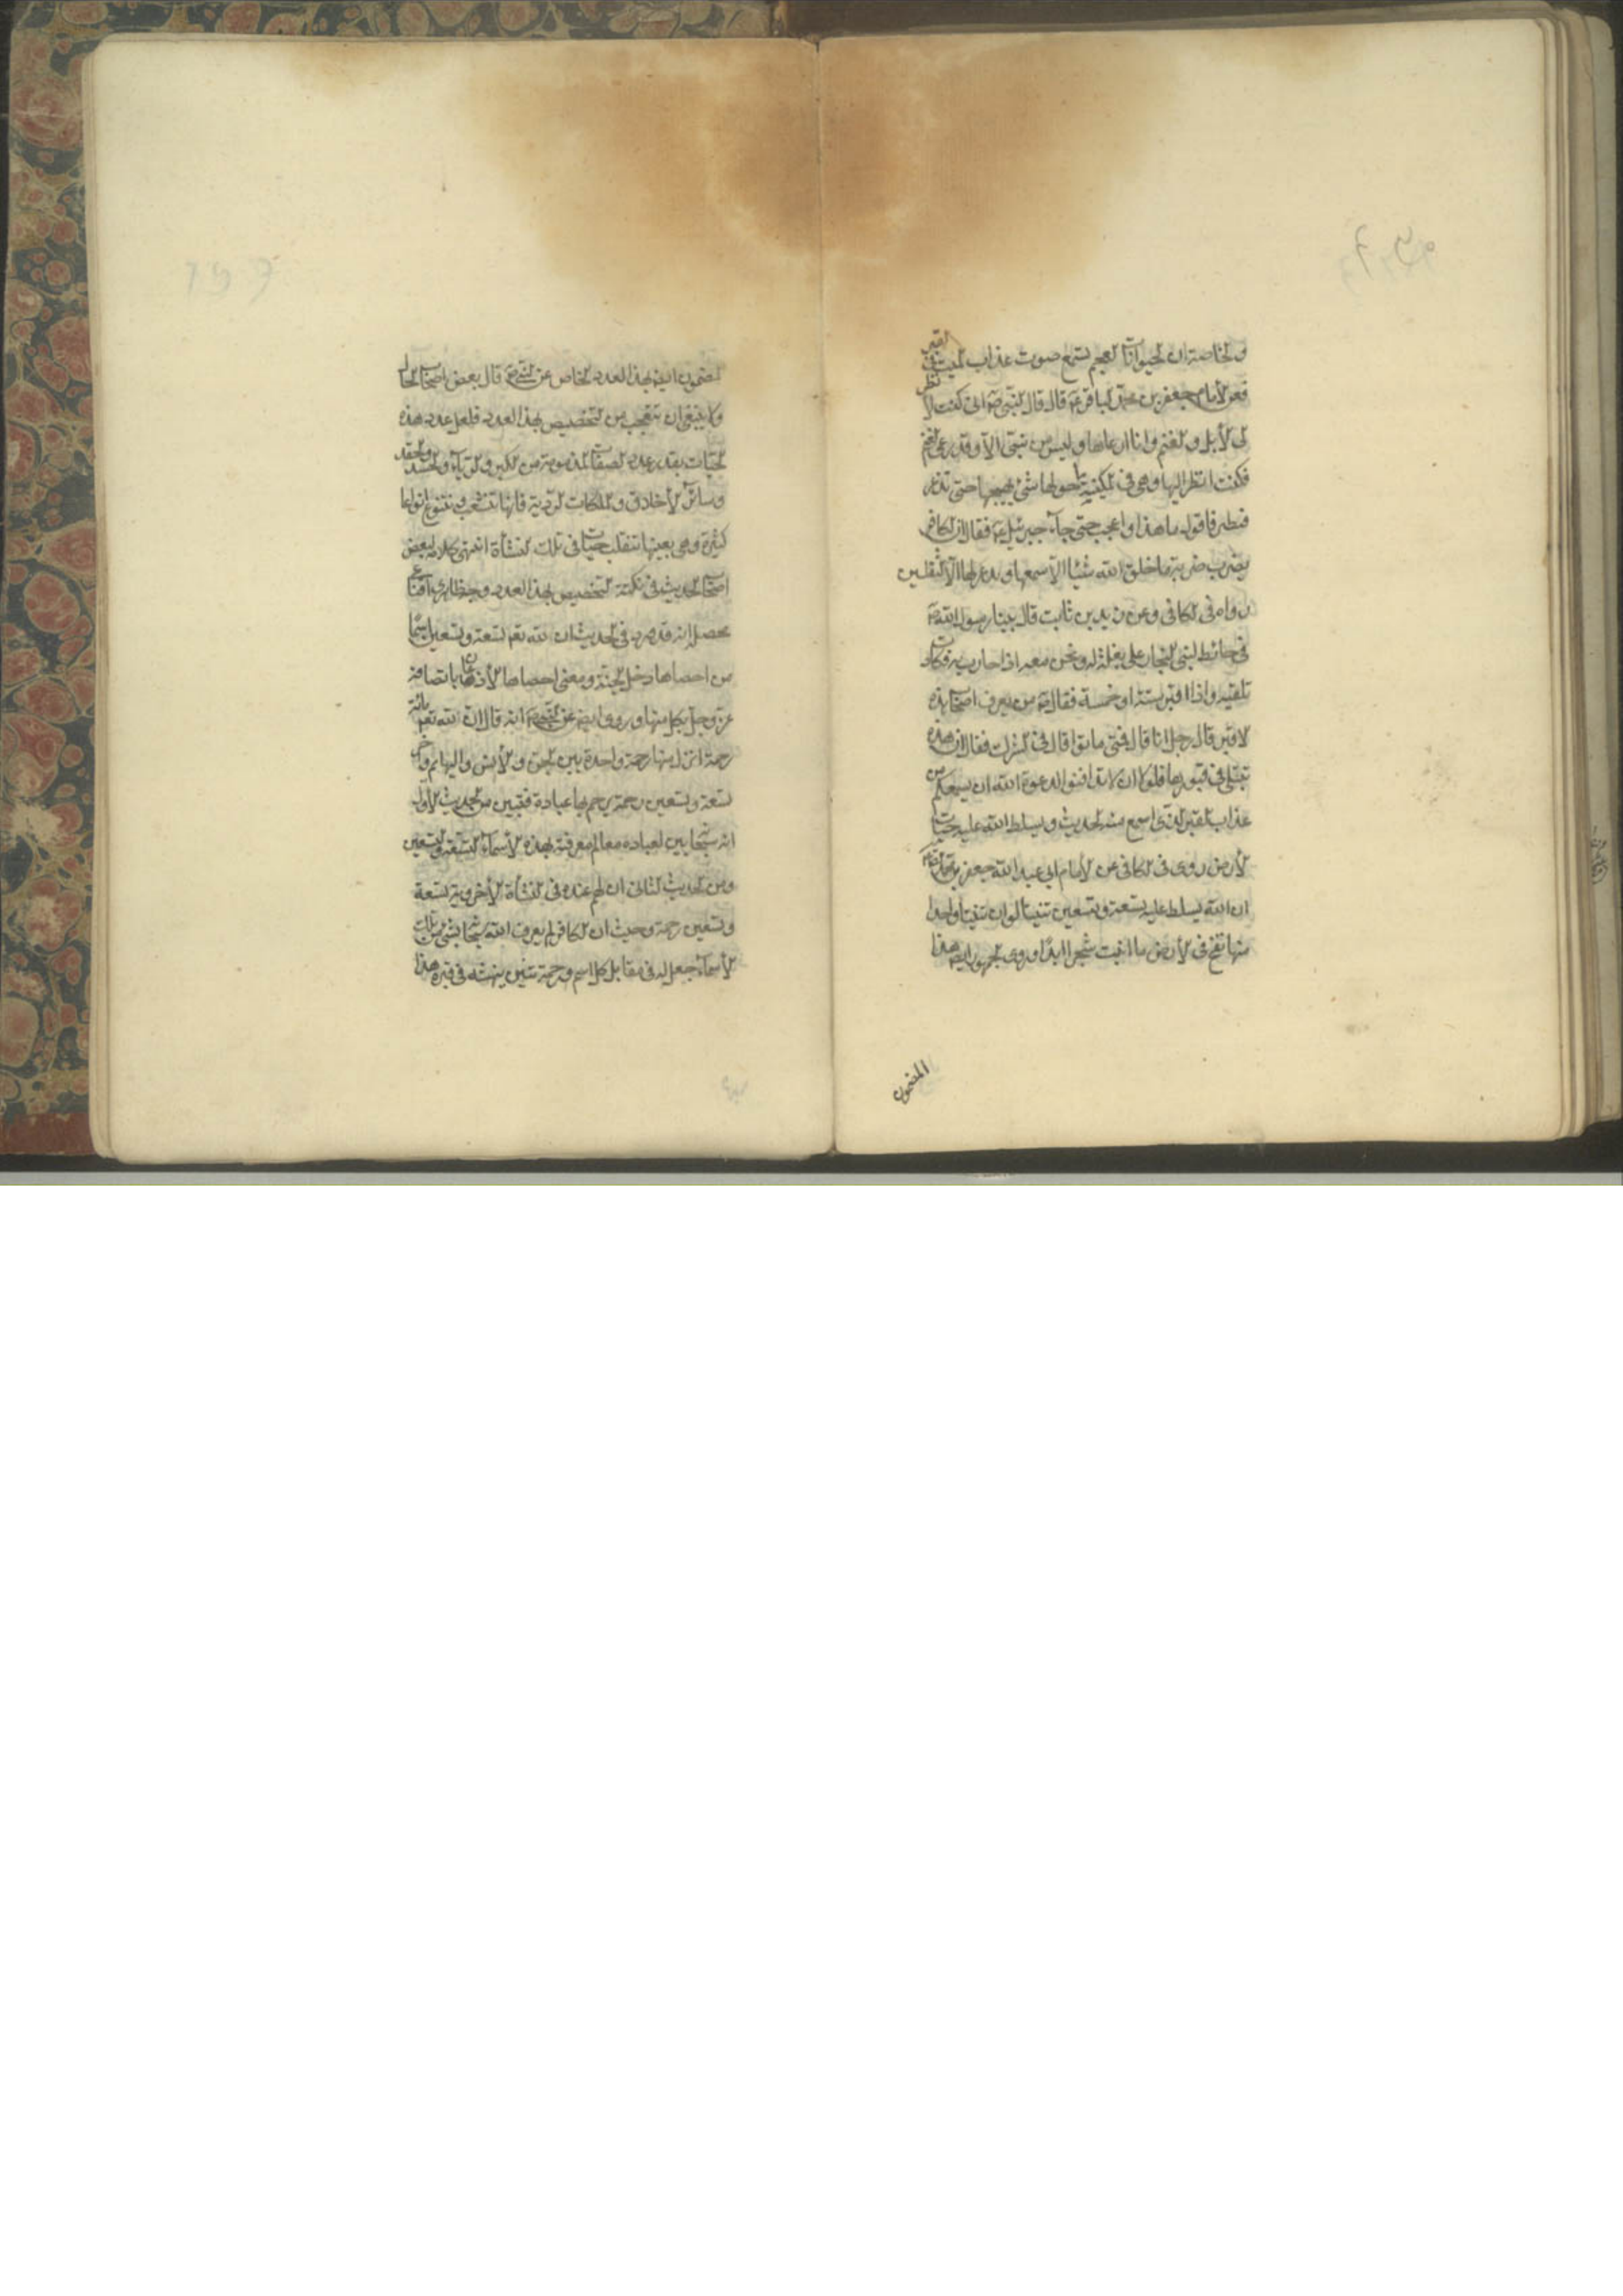 والخاصة ان الحيوانات العجم تسمع صوت عذاب الميت فى القبر
فعن الأمام جعفر بن محمد الباقر ع قال قال النبى ص انى كنت انظر
الى الأبل والغنم وانا ارعاها وليس من نبى الا وقد رعى الغنم
فكنت انظر اليها وهى فى المكينة ما حولها شئ يهيجها حتى تذعر
فتطير فاقول ما هذا واعجب حتى جاء جبرئيل ع فقال ان الكافر
يضرب ضربة ما خلق الله شيئا الا سمعها ويذعر لها الا الثقلين
رواه فى الكافى وعن زيد بن ثابت قال بينا رسول الله ص
فى حائط لبنى النجار على بغلة له ونحن معه اذا حارت به فكادت
تلقيه واذا اقبر ستة او خمسة فقال ص من يعرف اصحاب هذه
الاقبر قال رجل انا قال فمتى ماتوا قال فى الشرك فقال ان هذه
تبتلى فى قبورها فلولا ان لا تدافنوا لدعوت الله ان يسمعكم من
عذاب القبر الذى اسمع منه الحديث ويسلط الله عليه حيات
الأرض روى فى الكافى عن الأمام ابى عبد الله جعفر بن محمد الصادق
ان الله يسلط عليه تسعة وتسعين تنينا لو ان تنينا واحدا
منها نفخ فى الأرض ما انبتت شجرا ابدا وروى الجمهور ايضا هذا
المضمون
المضمون ايضا بهذا العدد الخاص عن النبى ص قال بعض اصحاب الحال
ولا ينبغى ان تتعجب من التخصيص بهذا العدد فلعل عدد هذه
الحيات بقدر عدد الصفات المذمومة من الكبر والرياء والحسد والحقد
وسائر الأخلاق والملكات الردية فانها تتشعب وتتنوع انواعا
كثيرة وهى بعينها تنقلب حيات فى تلك النشأة انتهى كلامه ولبعض
اصحاب الحديث فى نكتة التخصيص بهذا العدد وجه ظاهرى اقناعى
محصله انه قد ورد فى الحديث ان لله تعم تسعة وتسعين اسما
من احصاها دخل الجنة ومعنى احصاها الأذعان باتصافه
عز وجل بكل منها وروى ايضا عن النبى ص انه قال ان لله تعم مائة
رحمة انزل منها رحمة واحدة بين الجن والأنس والبهائم واخر
تسعة وتسعين رحمة يرحم بها عباده فتبين من الحديث الأول
انه سبحانه بين لعباده معالم معرفته بهذه الأسماء التسعة والتسعين
ومن الحديث الثانى ان لهم عنده فى النشأة الأخروية تسعة
وتسعين رحمة وحيث ان الكافر لم يعرف الله سبحانه بشئ من تلك
الأسماء جعل له فى مقابل كل اسم ورحمة تنين ينهشه فى قبره هذا